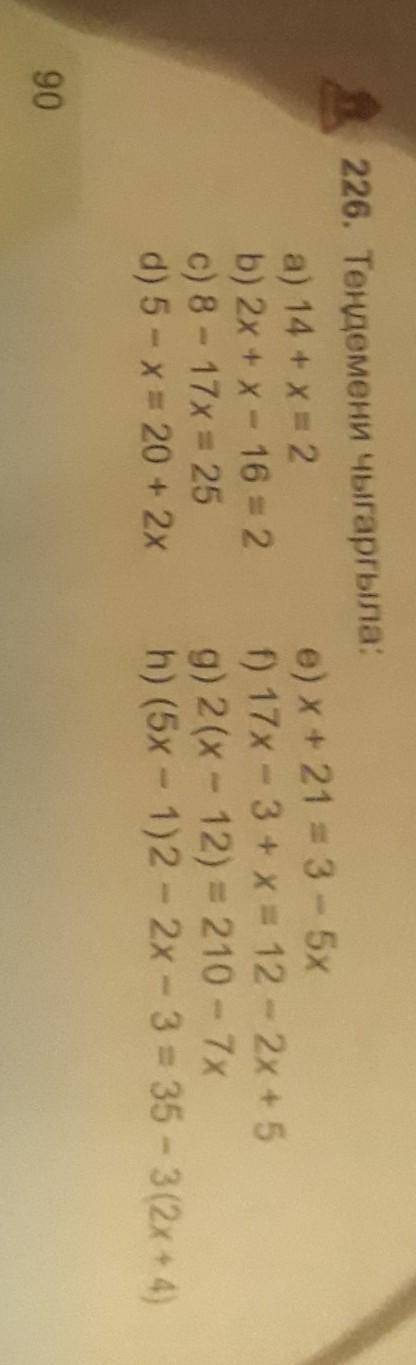 226. Теңдемени чыгаргыла:
a) 14 + x = 2
b) 2x + x − 16 = 2
c) 8 − 17x = 25
d) 5 − x = 20 + 2x
e) x + 21 = 3 − 5x
f) 17x − 3 + x = 12 − 2x + 5
g) 2(x − 12) = 210 − 7x
h) (5x − 1)2 − 2x − 3 = 35 − 3(2x + 4)
90